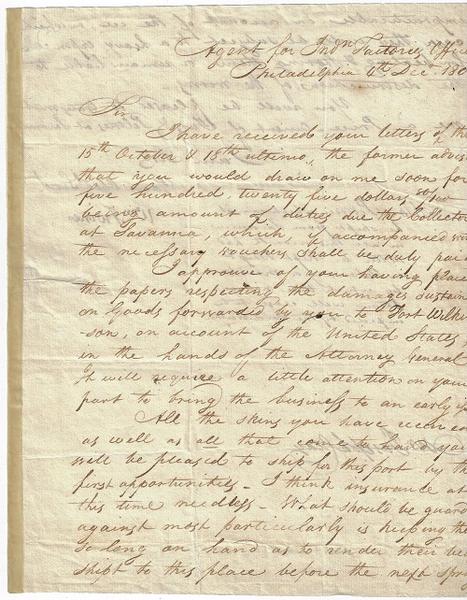 Agent for Indn Factories Office
Philadelphia 4th Dec. 180
Sir
I have received your letters of the
15th October & 18th ultimo, the former advis
that you would draw on me soon for
five hundred, twenty five dollars
being amount of duties due the Collector
at Savanna, which, if accompanied
the necessary vouchers shall be duly paid
I approve of your having place
the papers respecting the damages sustain
on Goods forwarded by you to Fort Wilkin
-son, on account of the United States,
in the hands of the Attorney General
It will require a little attention on your
part to bring the business to an early is
All the skins you have received
as well as all that come to hand you
will be pleased to ship for this port by the
first opportunities - I think insurance at
this time needless - What should be guard
against most particularly is keeping the
so long on hand as to render their being
shipt to this place before the next spr